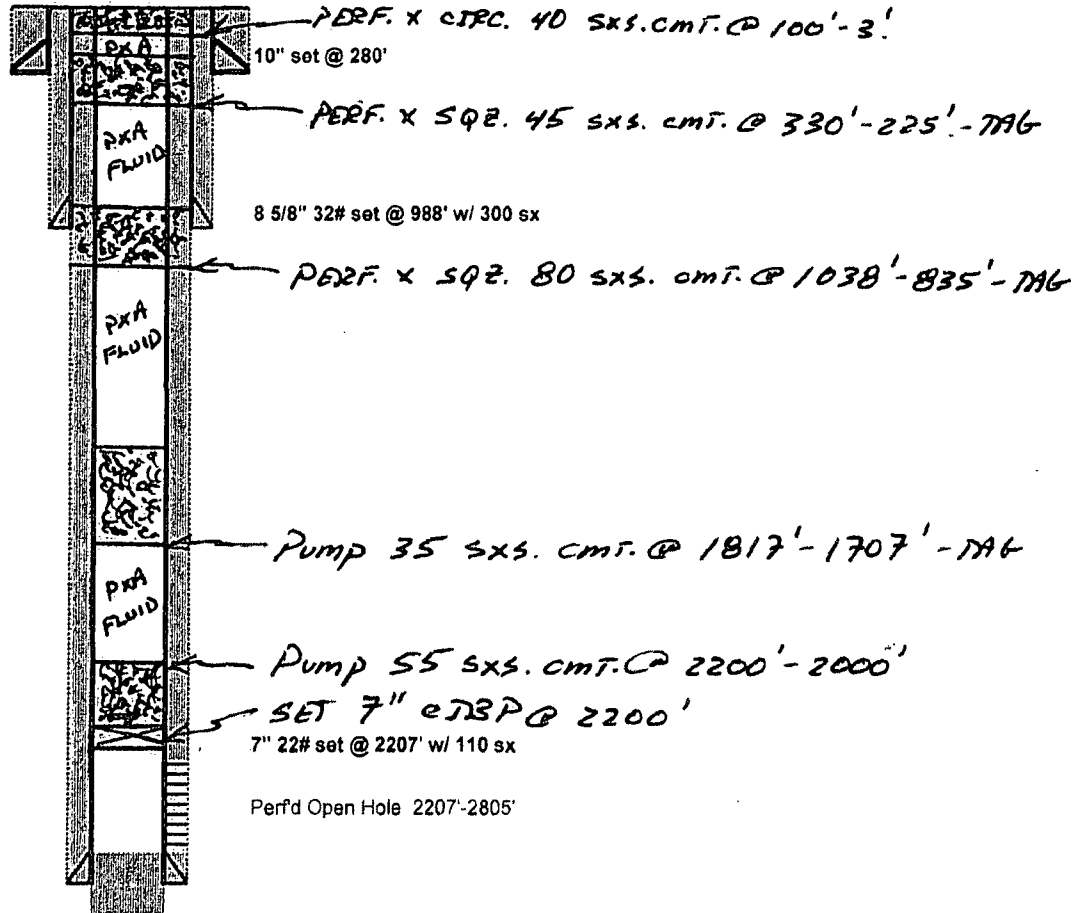 PERF. X CIRC. 40 SXS. CMT. @ 100'-3'
PXA
10" set @ 280'
PERF. X SQZ. 45 SXS. CMT. @ 330'-225'-TAG
PXA
FLUID
8 5/8" 32# set @ 988' w/ 300 sx
PERF. X SQZ. 80 SXS. CMT. @ 1038'-835'-TAG
PXA
FLUID
Pump 35 SXS. CMT. @ 1817'-1707'-TAG
PXA
FLUID
Pump 55 SXS. CMT. @ 2200'-2000'
SET 7" CIBP @ 2200'
7" 22# set @ 2207' w/ 110 sx
Perf'd Open Hole 2207'-2805'